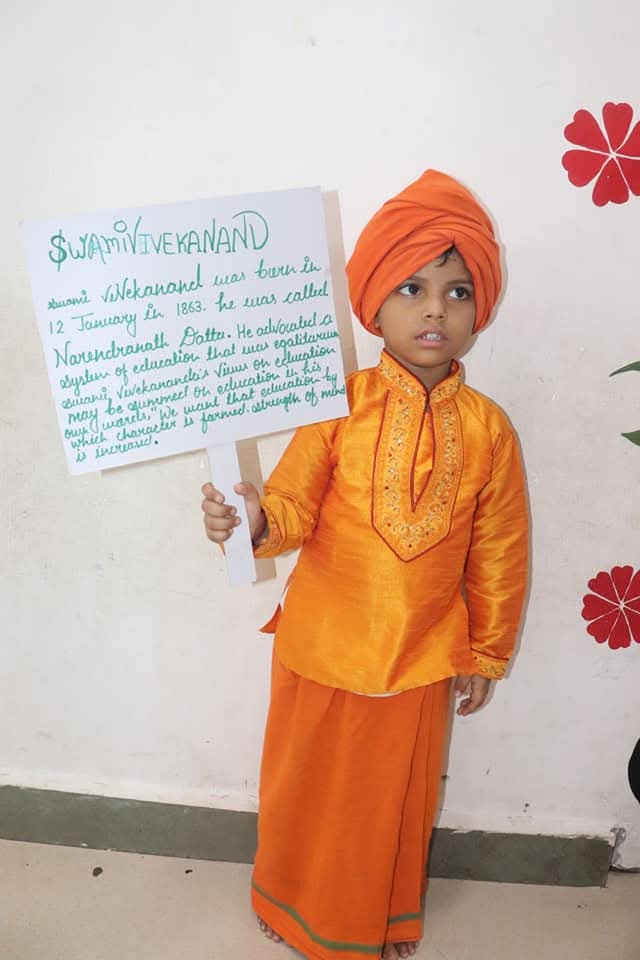 SWAMIVIVEKANAND
swami ViVekanand was born in
12 January in 1863. he was called
Narendranath Datta. He advocated a
system of education that was egalitarian
swami Vivekananda's view on education
may be summed on education in his
own words." We want that education by
which character is formed. strength of mind
is increased.